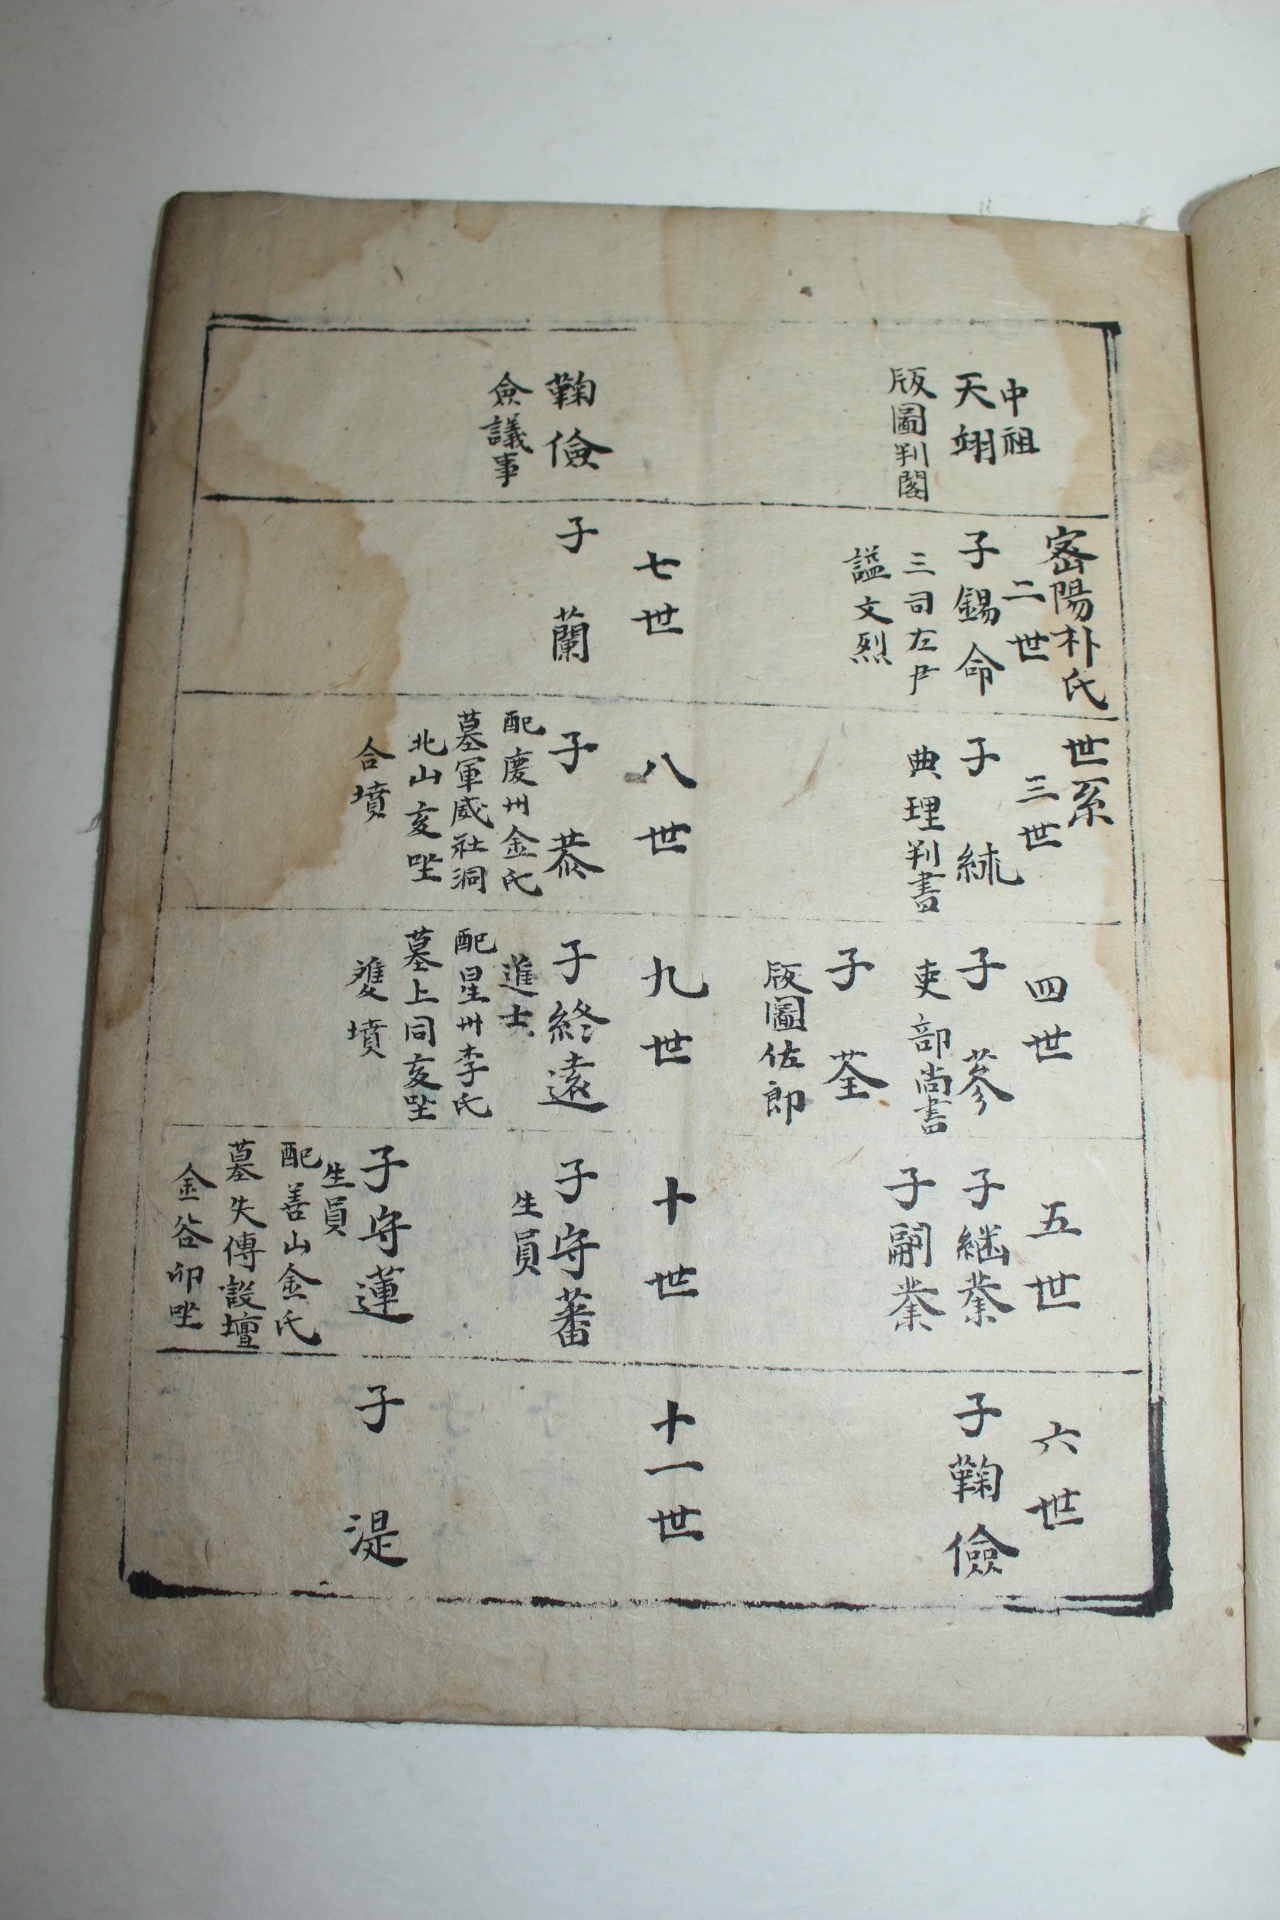 密陽朴氏世系
中祖
天翊
版圖判閣
二世
子錫命
三司左尹
諡文烈
三世
子絉
典理判書
四世
子蔘
吏部尚書
子荃
版圖佐郎
五世
子継業
子嗣業
六世
子鞠儉
鞠儉
僉議事
七世
子蘭
八世
子菾
配慶州金氏
墓軍威社洞
北山亥坐
合墳
九世
子終遠
進士
配星州李氏
墓上同亥坐
雙墳
十世
子守蕃
生員
子守蓮
生員
配善山金氏
墓失傳設壇
金谷卯坐
十一世
子湜